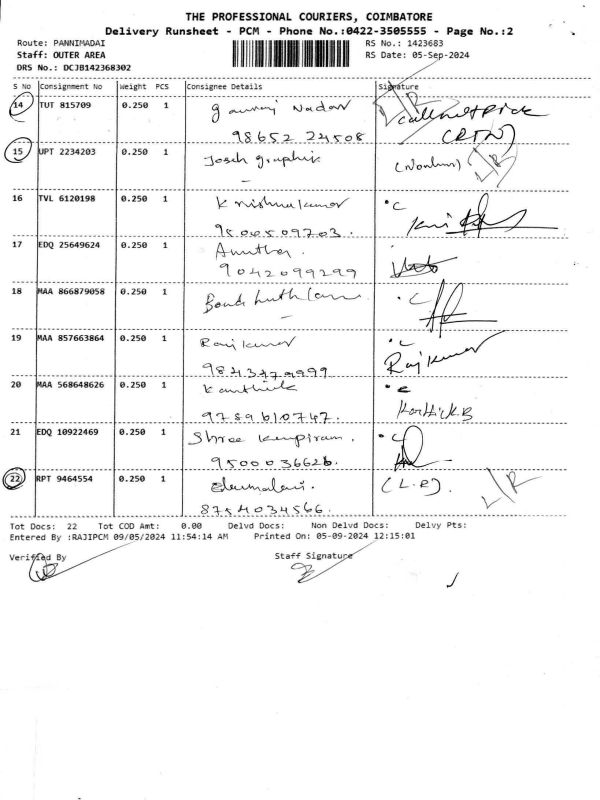 THE PROFESSIONAL COURIERS, COIMBATORE
Delivery Runsheet - PCM - Phone No.:0422-3505555 - Page No.:2
Route: PANNIMADAI RS No.: 1423683
Staff: OUTER AREA RS Date: 05-Sep-2024
DRS No.: DCJB142368302
S No Consignment No Weight PCS Consignee Details Signature
14 TUT 815709 0.250 1 Nadar L/R
98652 24508 (RTN)
15 UPT 2234203 0.250 1 L/R
16 TVL 6120198 0.250 1 Krishnakumar
9500509703.
17 EDQ 25649624 0.250 1
9042099299
18 MAA 866879058 0.250 1
19 MAA 857663864 0.250 1 Rajkumar Rajkumar
20 MAA 568648626 0.250 1 Karthick Karthick.B
9789610747.
21 EDQ 10922469 0.250 1 Shree
9500036626.
22 RPT 9464554 0.250 1 L/R
8754034566.
Tot Docs: 22 Tot COD Amt: 0.00 Delvd Docs: Non Delvd Docs: Delvy Pts:
Entered By :RAJIPCM 09/05/2024 11:54:14 AM Printed On: 05-09-2024 12:15:01
Verified By Staff Signature